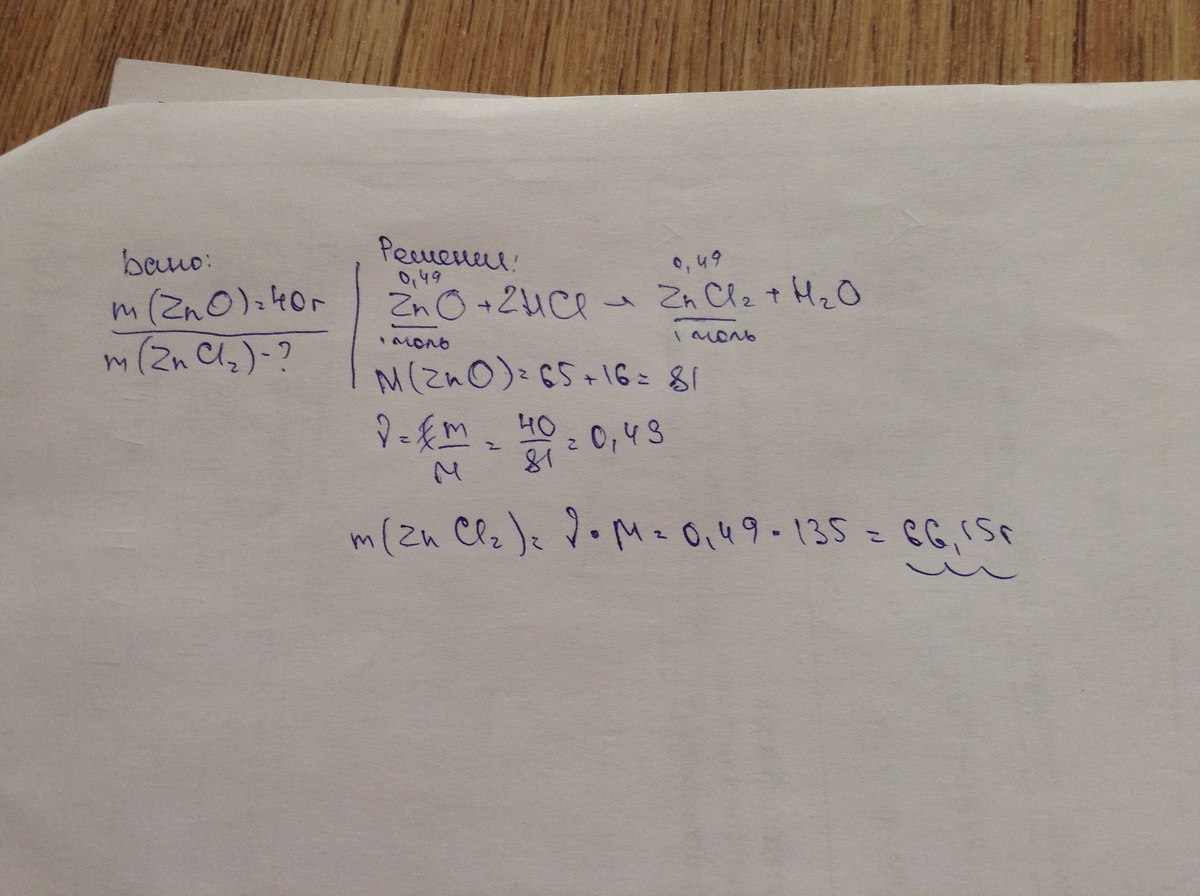 Дано:
m(ZnO)=40г
m(ZnCl₂)-?
Решение:
0,49 0,49
ZnO + 2HCl → ZnCl₂ + H₂O
1 моль 1 моль
M(ZnO) = 65 + 16 = 81
ν = m/M = 40/81 = 0,49
m(ZnCl₂) = ν · M = 0,49 · 135 = 66,15г